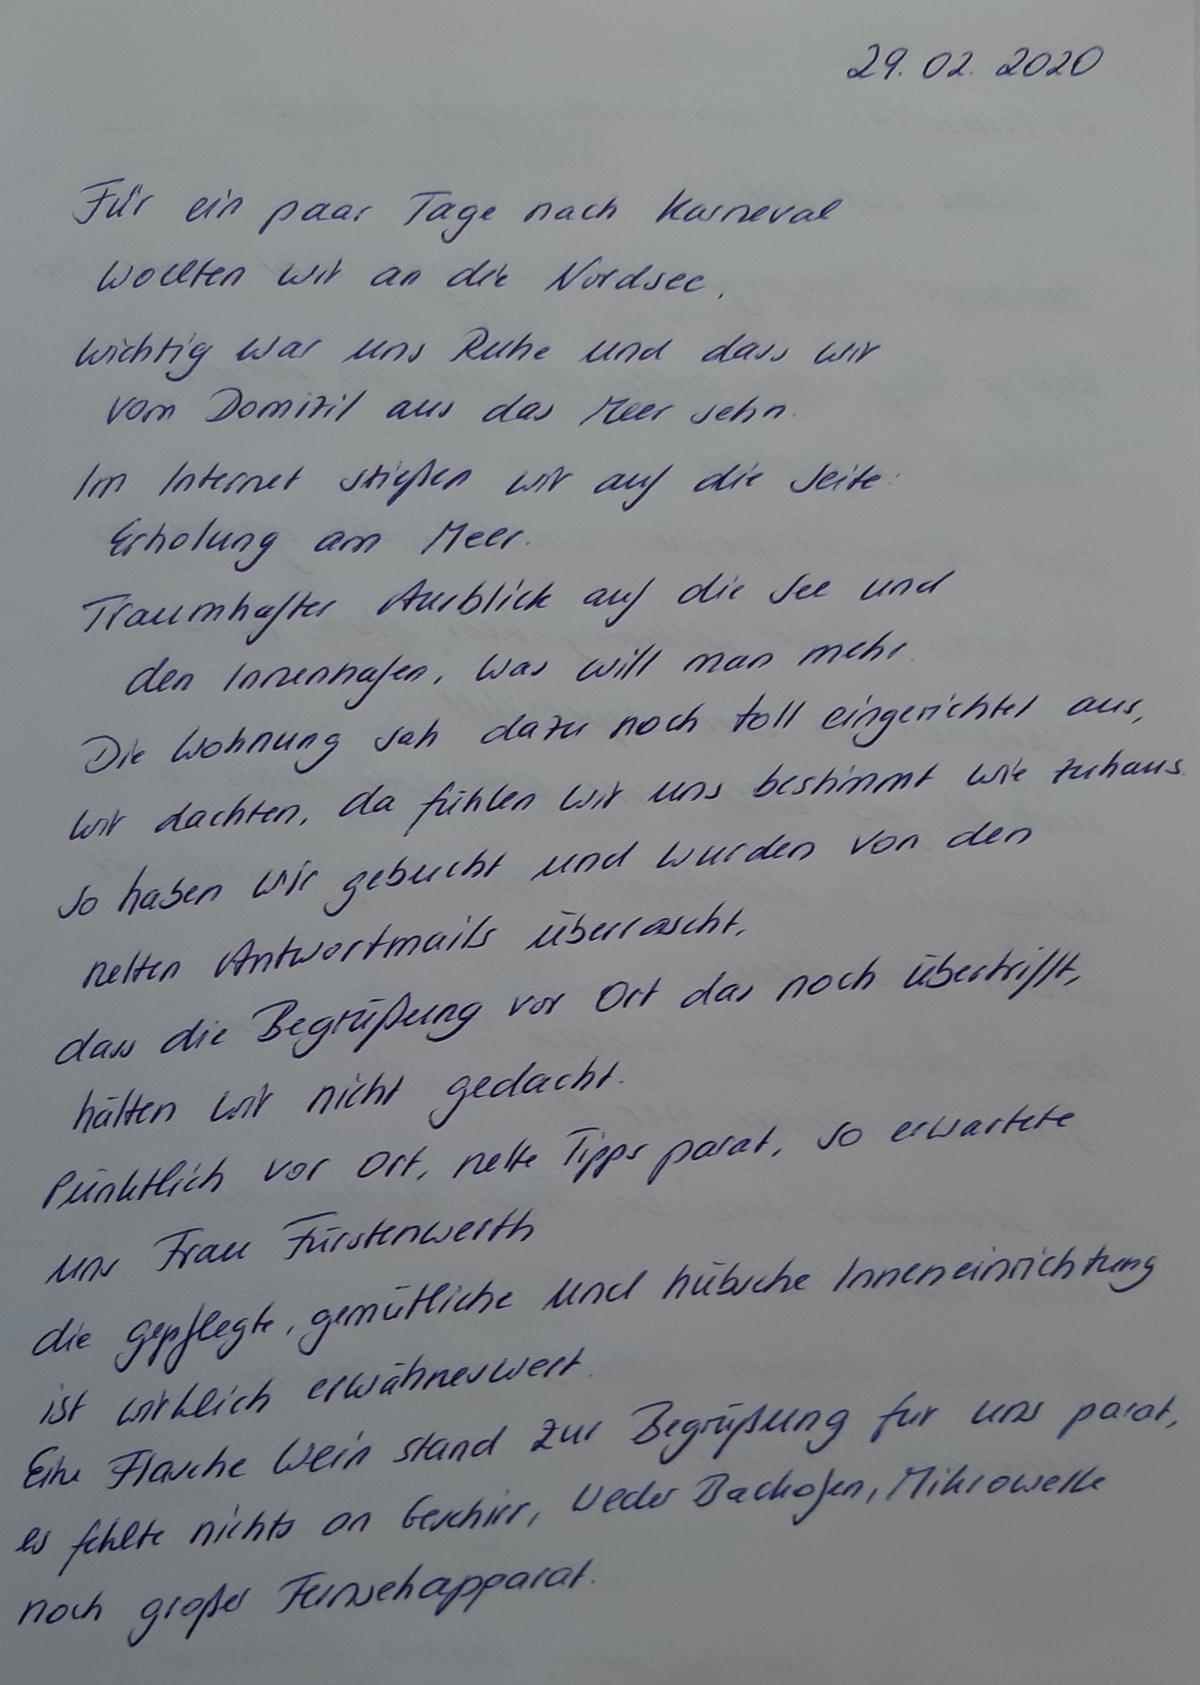 29.02.2020
Für ein paar Tage nach Karneval
wollten wir an die Nordsee.
Wichtig war uns Ruhe und dass wir
vom Domizil aus das Meer sehn.
Im Internet stießen wir auf die Seite:
Erholung am Meer.
Traumhafter Ausblick auf die See und
den Innenhafen, was will man mehr.
Die Wohnung sah dazu noch toll eingerichtet aus,
wir dachten, da fühlen wir uns bestimmt wie zuhaus.
So haben wir gebucht und wurden von den
netten Antwortmails überrascht,
dass die Begrüßung vor Ort das noch übertrifft,
hätten wir nicht gedacht.
Pünktlich vor Ort, nette Tipps parat, so erwartete
uns Frau Fürstenwerth
die gepflegte, gemütliche und hübsche Inneneinrichtung
ist wirklich erwähneswert.
Eine Flasche Wein stand zur Begrüßung für uns parat,
es fehlte nichts an Geschirr, weder Backofen, Mikrowelle
noch großer Fernsehapparat.